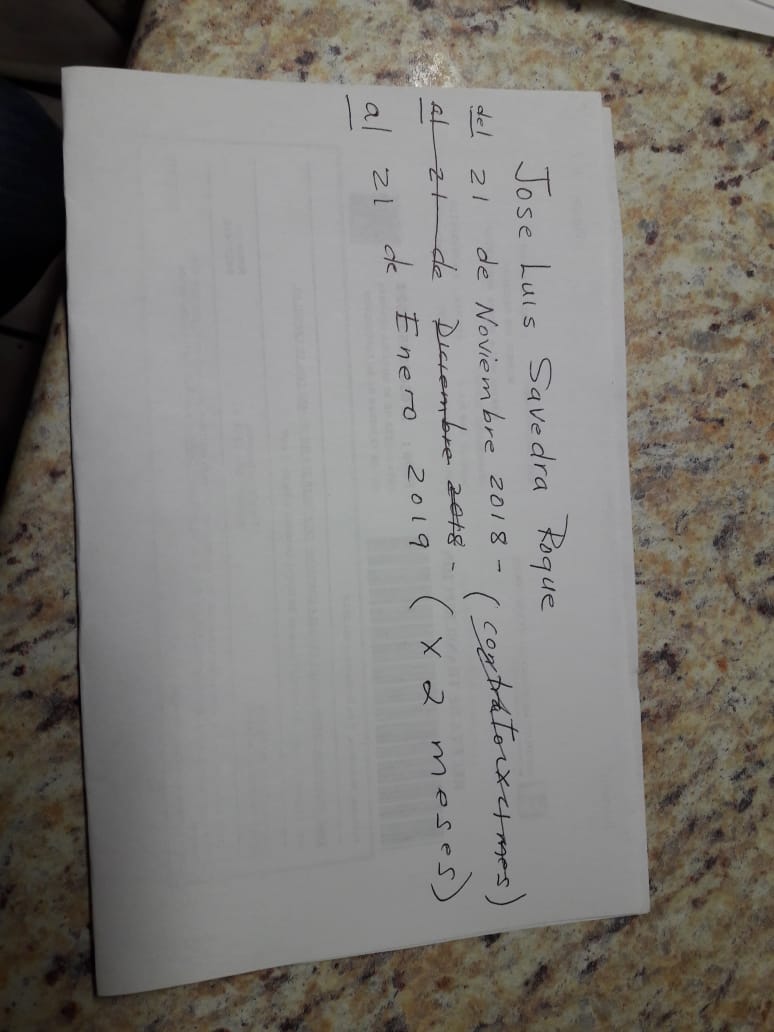 Jose Luis Savedra Roque
del 21 de Noviembre 2018 - (contrato x 1 mes)
al 21 de Diciembre 2018 -
al 21 de Enero 2019 (x 2 meses)